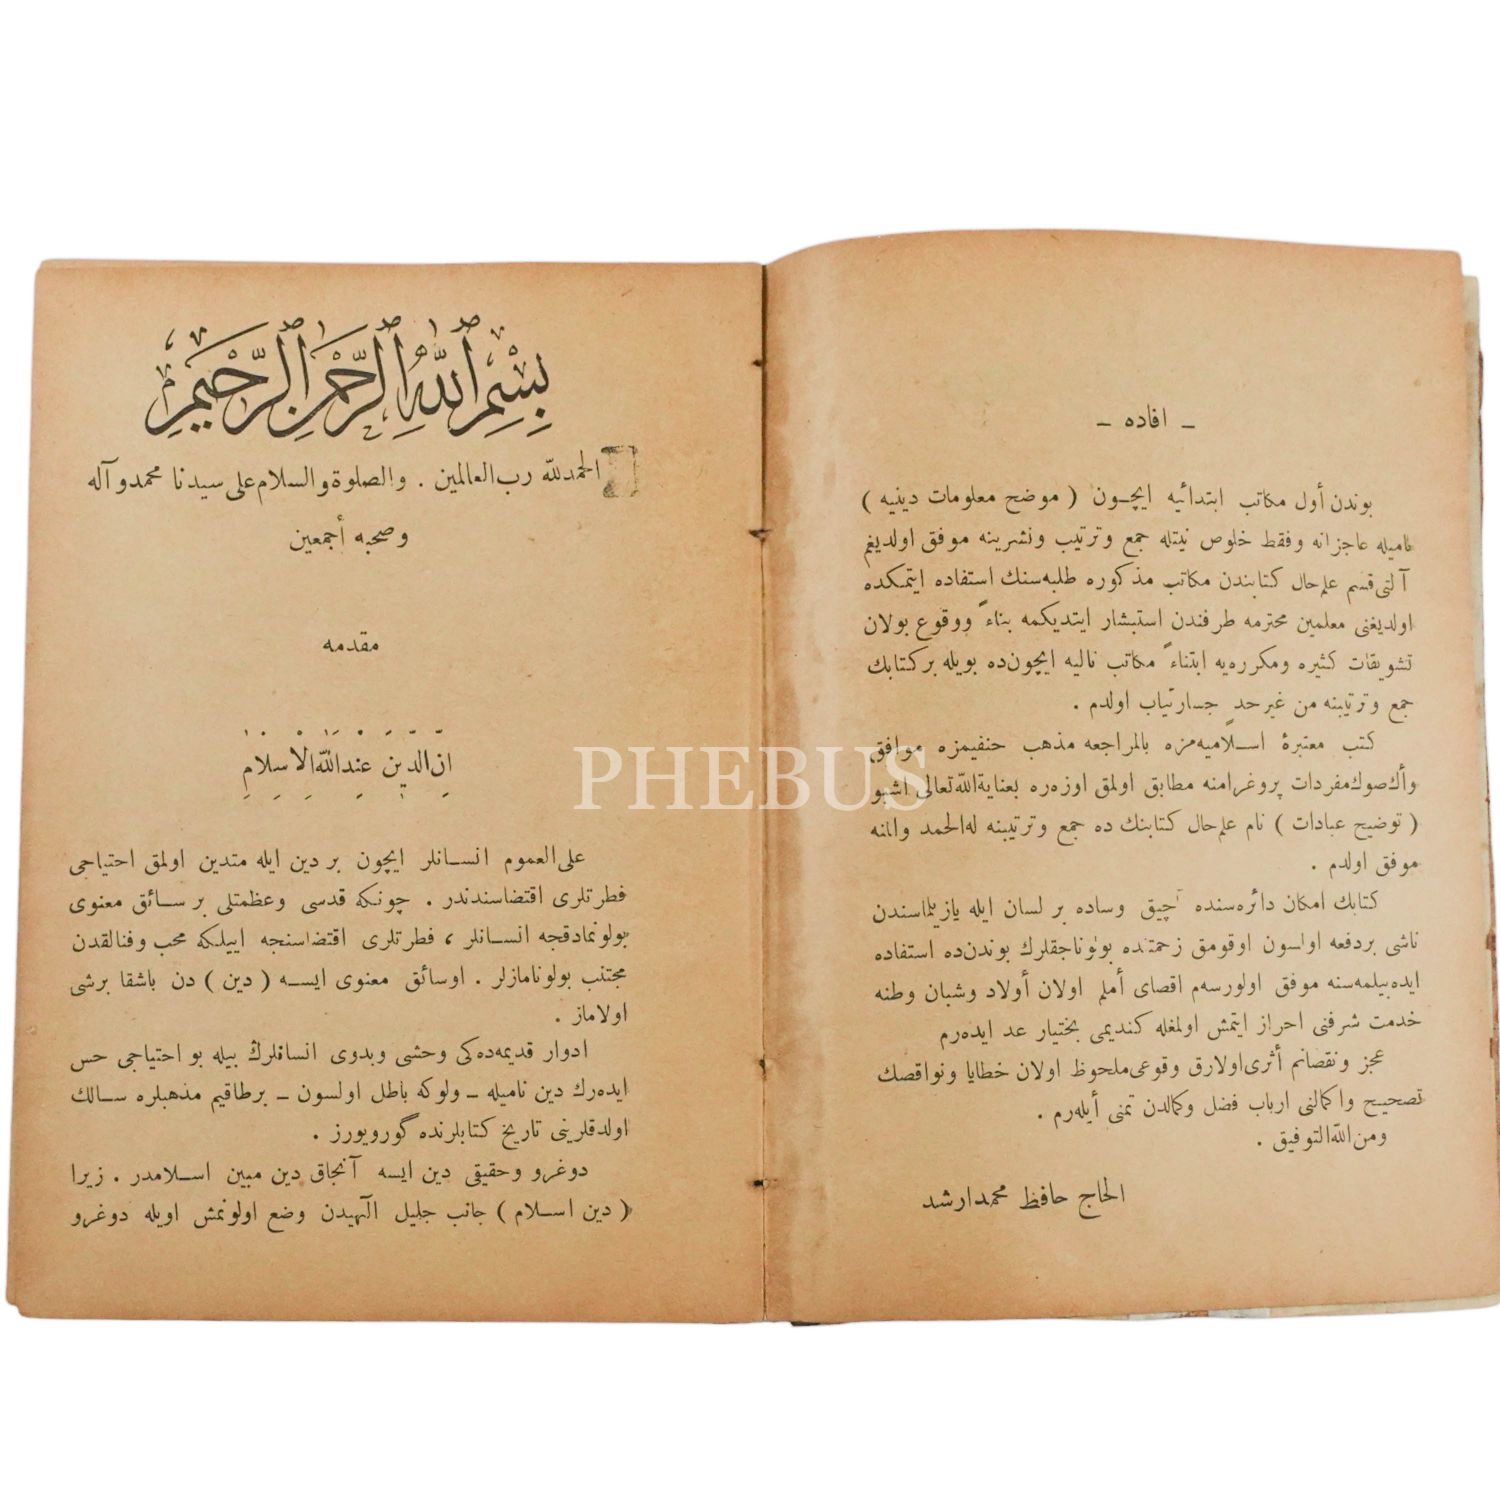 ـ افاده ـ
بوندن أول مكاتب ابتدائيه ايچـون ( موضح معلومات دينيه )
ناميله عاجزانه وفقط خلوص نيتله جمع وترتيب ونشرينه موفق اولديغم
آلتى قسم علم حال كتابندن مكاتب مذكوره طلبه‌سنك استفاده ايتمكده
اولديغنى معلمين محترمه طرفندن استبشار ايتديكمه بناءً ووقوع بولان
تشويقات كثيره ومكرره‌يه ابتناءً مكاتب تاليه ايچون‌ده بويله بركتابك
جمع وترتيبنه من غير حدٍ جسارتياب اولدم .
كتب معتبرۀ اسـلاميه‌مزه بالمراجعه مذهب حنفيمزه موافق
وأك صوك مفردات پروغرامنه مطابق اولمق اوزه‌ره بعناية الله تعالى اشبو
( توضيح عبادات ) نام علم حال كتابنك ده جمع وترتيبنه له الحمد والمنه
موفق اولدم .
كتابك امكان دائره‌سنده آچيق وساده بر لسان ايله يازيلماسندن
ناشى بردفعه اولسون اوقومق زحمتنده بولوناجقلرك بوندن‌ده استفاده
ايده‌بيلمه‌سنه موفق اولورسه‌م اقصاى أملم اولان أولاد وشبان وطنه
خدمت شرفنى احراز ايتمش اولمغله كنديمى بختيار عد ايده‌رم
عجز ونقصانم أثرى اولارق وقوعى ملحوظ اولان خطايا ونواقصك
تصحيح واكمالنى ارباب فضل وكمالدن تمنى أيله‌رم .
ومن الله التوفيق .
الحاج حافظ محمد ارشد
بِسْمِ اللّٰهِ الرَّحْمٰنِ الرَّحِيْمِ
الحمد لله رب العالمين . والصلوة والسلام على سيدنا محمد وآله
وصحبه أجمعين
مقدمه
اِنَّ الدّٖينَ عِنْدَ اللّٰهِ الْاِسْلَامِ
على العموم انسـانلر ايچون بر دين ايله متدين اولمق احتياجى
فطرتلرى اقتضاسندندر . چونكه قدسى وعظمتلى بر سـائق معنوى
بولونمادقجه انسـانلر ، فطرتلرى اقتضاسنجه اييلكه محب وفنالقدن
مجتنب بولونامازلر . اوسائق معنوى ايسـه ( دين ) دن باشقا برشى
اولاماز .
ادوار قديمه‌ده‌كى وحشى وبدوى انسانلرك بيله بو احتياجى حس
ايده‌رك دين ناميله ـ ولوكه باطل اولسون ـ برطاقيم مذهبلره سـالك
اولدقلرينى تاريخ كتابلرنده گورويورز .
دوغرو وحقيقى دين ايسه آنجاق دين مبين اسـلامدر . زيرا
( دين اسـلام ) جانب جليل الٓهيدن وضع اولونمش اويله دوغرو
PHEBUS